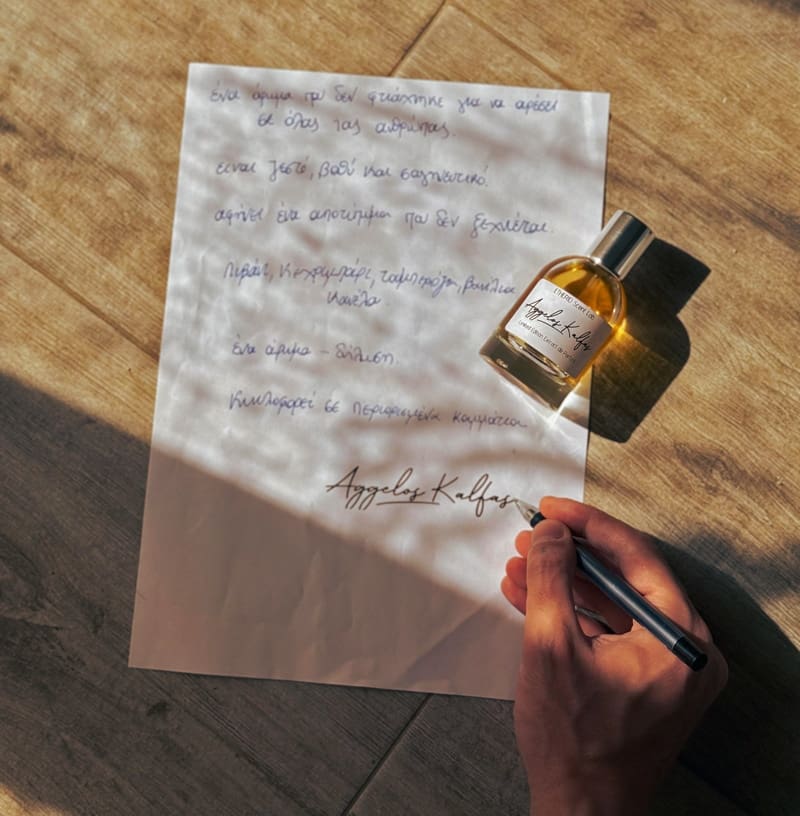 ένα άρωμα που δεν φτιάχτηκε για να αρέσει
σε όλους τους ανθρώπους.
είναι ζεστό, βαθύ και σαγηνευτικό.
αφήνει ένα αποτύπωμα που δεν ξεχνιέται.
Λιβάνι, Κεχριμπάρι, τουμπερόζα, βανίλια
Κανέλα
ένα άρωμα - δήλωση.
Κυκλοφορεί σε περιορισμένα κομμάτια
Aggelos Kalfas
Scent Lab
Aggelos Kalfas
Limited Edition Extrait de Parfum